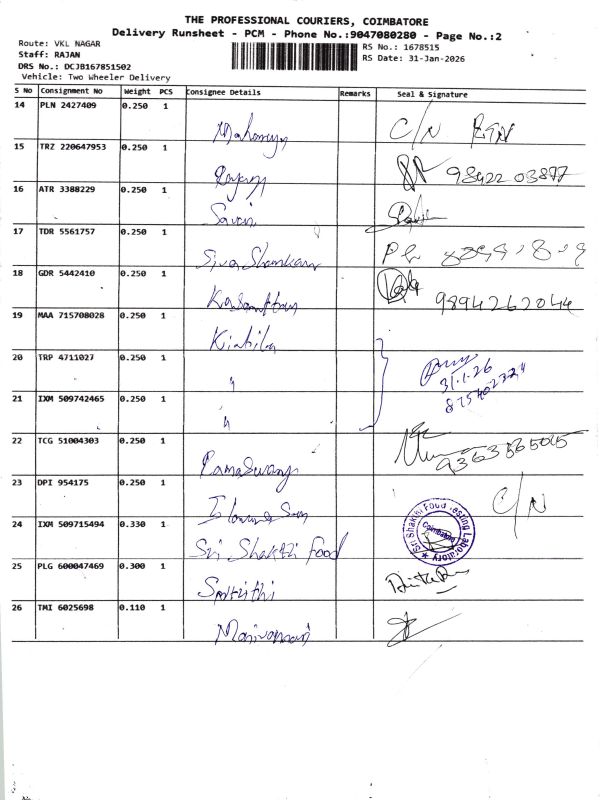 THE PROFESSIONAL COURIERS, COIMBATORE
Delivery Runsheet - PCM - Phone No.:9047080280 - Page No.:2
Route: VKL NAGAR
Staff: RAJAN
DRS No.: DCJB167851502
Vehicle: Two Wheeler Delivery
RS No.: 1678515
RS Date: 31-Jan-2026
S No Consignment No Weight PCS Consignee Details Remarks Seal & Signature
14 PLN 2427409 0.250 1 C/N
15 TRZ 220647953 0.250 1 98422 03877
16 ATR 3388229 0.250 1 Savari
17 TDR 5561757 0.250 1 Siva Shankar
18 GDR 5442410 0.250 1 9894262044
19 MAA 715708028 0.250 1
20 TRP 4711027 0.250 1 " 31.1.26
21 IXM 509742465 0.250 1 "
22 TCG 51004303 0.250 1 Ramaswamy
23 DPI 954175 0.250 1 C/N
24 IXM 509715494 0.330 1 Sri Shakthi Food Sri Shakthi Food Testing Laboratory Coimbatore
25 PLG 600047469 0.300 1
26 TMI 6025698 0.110 1